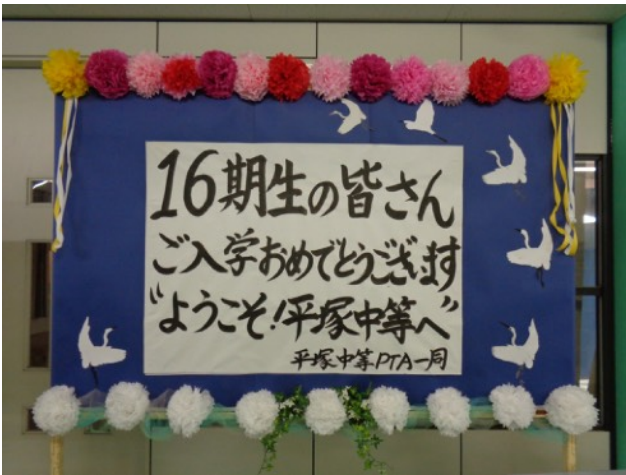 16期生の皆さん
ご入学おめでとうございます
"ようこそ!平塚中等へ"
平塚中等PTA一同